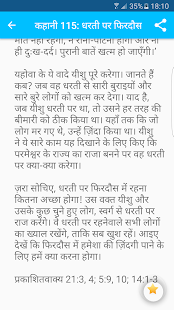 57% 18:10
कहानी 115: धरती पर फिरदौस
मौत नहीं रहेगी, न रोना-पीटना होगा और ना
ही दुःख-दर्द। पुरानी बातें खत्म हो जाएँगी।'
यहोवा के ये वादे यीशु पूरे करेगा। जानते हैं
कब? जब वह धरती से सारी बुराइयों और
सारे बुरे लोगों को खत्म कर देगा। याद है,
जब यीशु धरती पर था, तो उसने हर तरह की
बीमारी को ठीक किया था। यहाँ तक कि जो
लोग मर गये थे, उन्हें ज़िंदा किया था। यीशु
ने ये सारे काम यह दिखाने के लिए किए कि
परमेश्वर के राज्य का राजा बनने पर वह धरती
पर क्या-क्या करेगा।
ज़रा सोचिए, धरती पर फिरदौस में रहना
कितना अच्छा होगा! उस वक्त यीशु और
उसके कुछ चुने हुए लोग, स्वर्ग से धरती पर
राज करेंगे। वे धरती पर रहनेवाले सभी लोगों
का ख्याल रखेंगे, ताकि सब खुश रहें। आइए
देखें कि फिरदौस में हमेशा की ज़िंदगी पाने के
लिए हमें क्या करना होगा।
प्रकाशितवाक्य 21:3, 4; 5:9, 10; 14:1-3